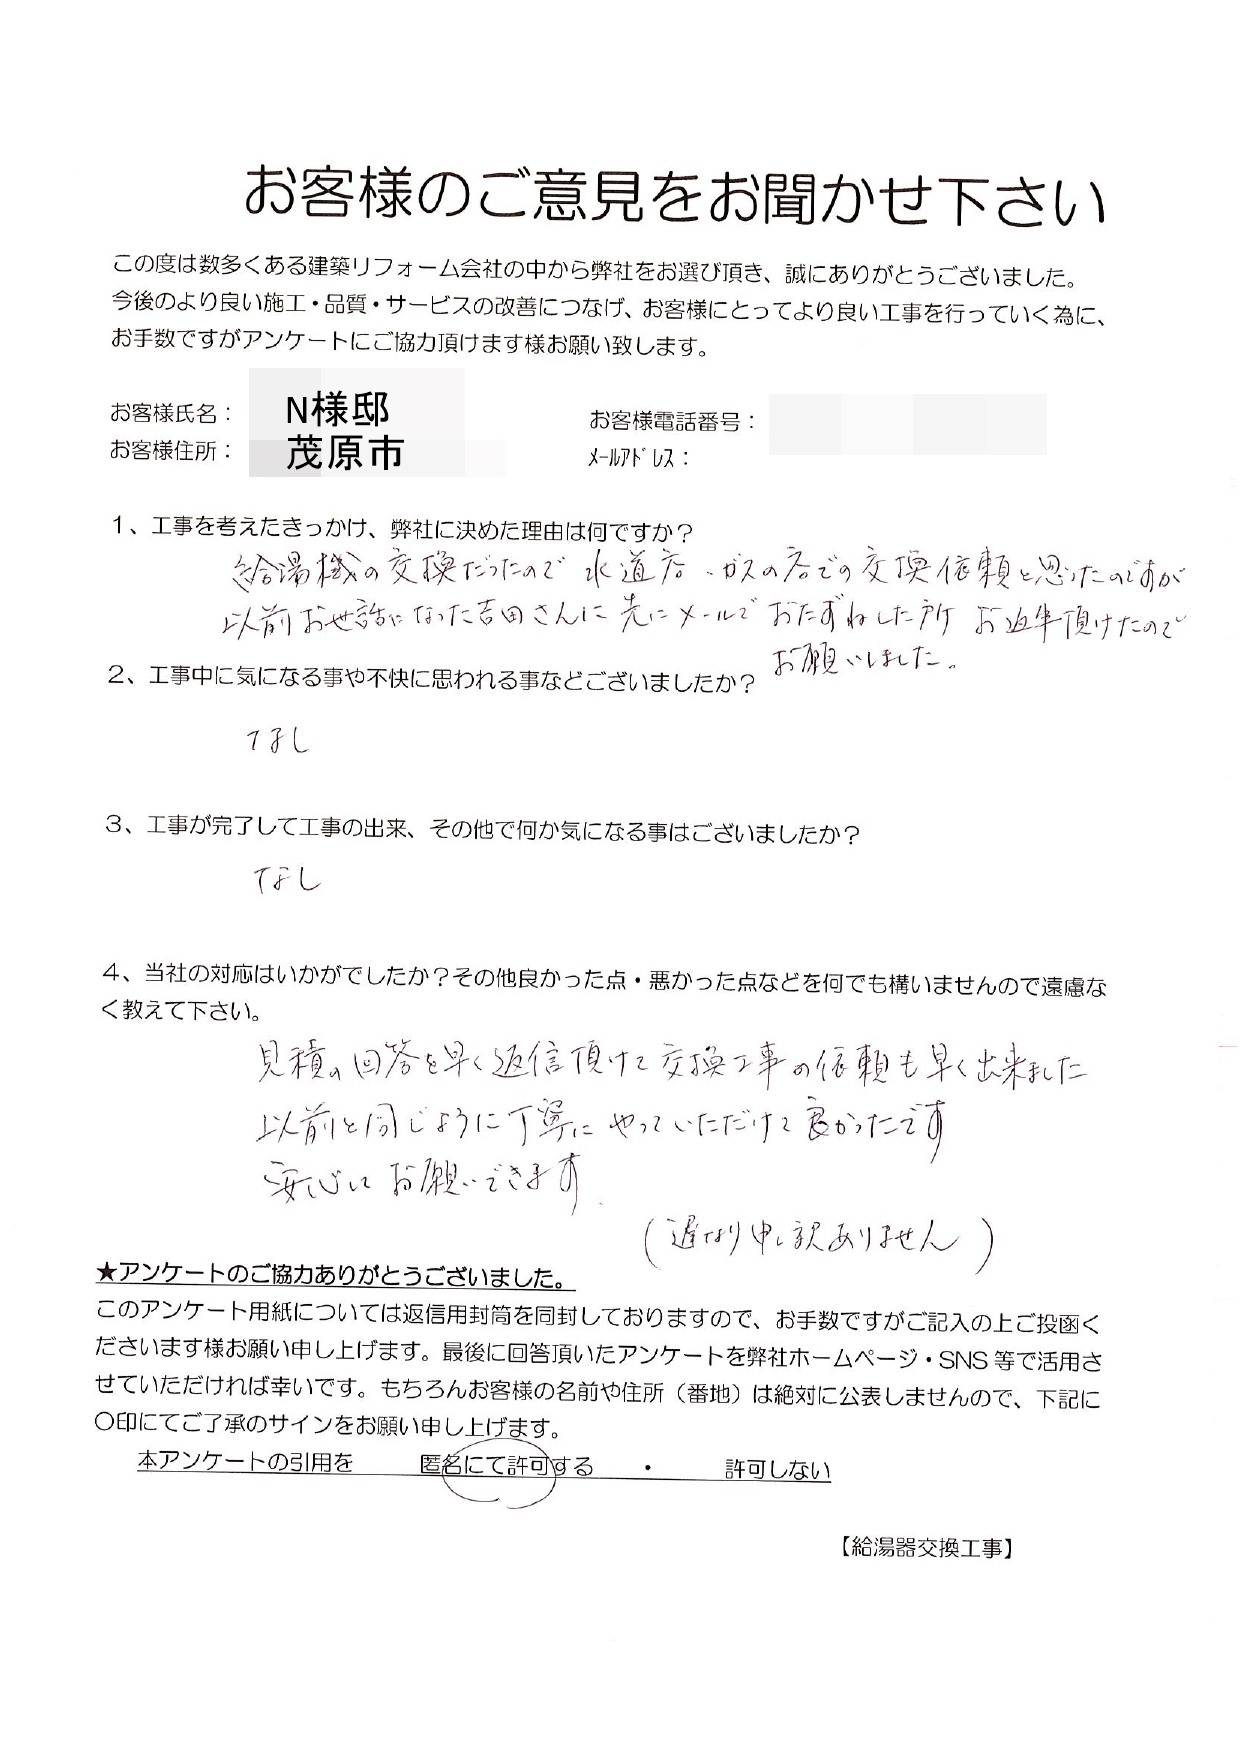 お客様のご意見をお聞かせ下さい
この度は数多くある建築リフォーム会社の中から弊社をお選び頂き、誠にありがとうございました。
今後のより良い施工・品質・サービスの改善につなげ、お客様にとってより良い工事を行っていく為に、
お手数ですがアンケートにご協力頂けます様お願い致します。
お客様氏名： N様邸 お客様電話番号：
お客様住所： 茂原市 ﾒｰﾙｱﾄﾞﾚｽ：
1、工事を考えたきっかけ、弊社に決めた理由は何ですか？
給湯機の交換だったので 水道店、ガスの店での交換依頼と思ったのですが
以前お世話になった吉田さんに先にメールでおたずねした所 お返事頂けたので
お願いしました。
2、工事中に気になる事や不快に思われる事などございましたか？
なし
3、工事が完了して工事の出来、その他で何か気になる事はございましたか？
なし
4、当社の対応はいかがでしたか？その他良かった点・悪かった点などを何でも構いませんので遠慮な
く教えて下さい。
見積の回答を早く返信頂けて交換工事の依頼も早く出来ました
以前と同じように丁寧にやっていただけて良かったです
安心してお願いできます
(遅なり申し訳ありません)
★アンケートのご協力ありがとうございました。
このアンケート用紙については返信用封筒を同封しておりますので、お手数ですがご記入の上ご投函く
ださいます様お願い申し上げます。最後に回答頂いたアンケートを弊社ホームページ・SNS 等で活用さ
せていただければ幸いです。もちろんお客様の名前や住所（番地）は絶対に公表しませんので、下記に
〇印にてご了承のサインをお願い申し上げます。
本アンケートの引用を 匿名にて許可する ・ 許可しない
【給湯器交換工事】